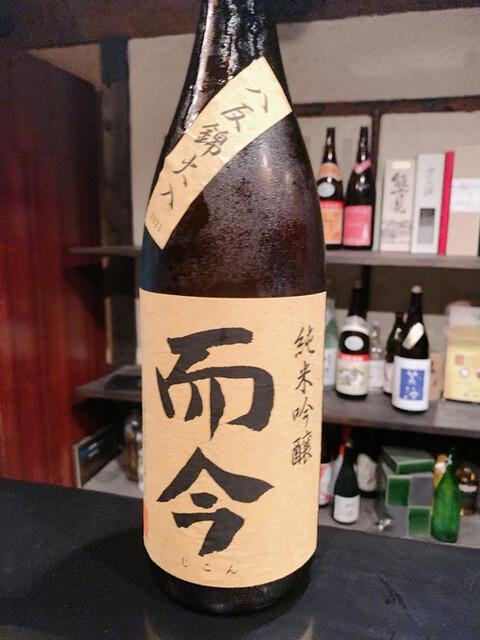 八反錦火入
2021
純米吟醸
而今
じこん